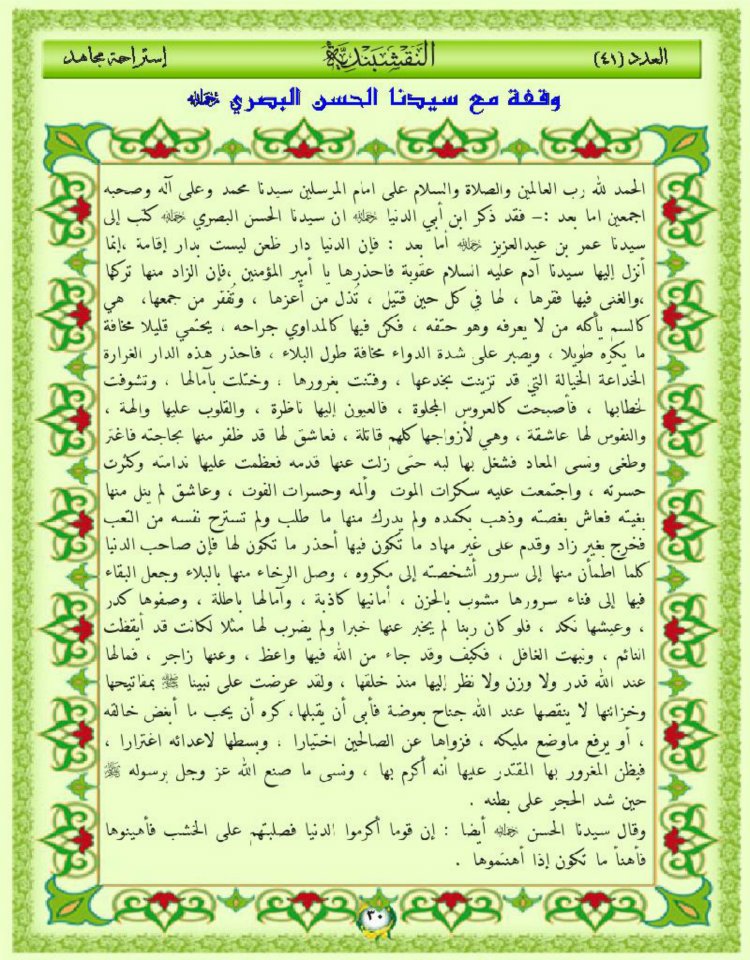 العدد (٤١)
النَّقْشَبَنْدِيَّة
إستراحة مجاهد
وقفة مع سيدنا الحسن البصري رحمه الله
الحمد لله رب العالمين والصلاة والسلام على امام المرسلين سيدنا محمد وعلى آله وصحبه
اجمعين اما بعد :– فقد ذكر ابن أبي الدنيا رحمه الله ان سيدنا الحسن البصري رحمه الله كتب إلى
سيدنا عمر بن عبدالعزيز رحمه الله أما بعد : فإن الدنيا دار ظعن ليست بدار إقامة ،إنما
أنزل إليها سيدنا آدم عليه السلام عقوبة فاحذرها يا أمير المؤمنين ،فإن الزاد منها تركها
،والغنى فيها فقرها ، لها في كل حين قتيل ، تُذل من أعزها ، وتُفقر من جمعها، هي
كالسم يأكله من لا يعرفه وهو حتفه ، فكن فيها كالمداوي جراحه ، يحتمي قليلا مخافة
ما يكره طويلا ، ويصبر على شدة الدواء مخافة طول البلاء ، فاحذر هذه الدار الغرارة
الخداعة الخيالة التي قد تزينت بخدعها ، وفتنت بغرورها ، وختلت بآمالها ، وتشوفت
لخطابها ، فأصبحت كالعروس المجلوة ، فالعيون إليها ناظرة ، والقلوب عليها والهة ،
والنفوس لها عاشقة ، وهي لأزواجها كلهم قاتلة ، فعاشق لها قد ظفر منها بحاجته فاغتر
وطغى ونسى المعاد فشغل بها لبه حتى زلت عنها قدمه فعظمت عليها ندامته وكثرت
حسرته ، واجتمعت عليه سكرات الموت وألمه وحسرات الفوت ، وعاشق لم ينل منها
بغيته فعاش بغصته وذهب بكمده ولم يدرك منها ما طلب ولم تسترح نفسه من التعب
فخرج بغير زاد وقدم على غير مهاد ما تكون فيها أحذر ما تكون لها فإن صاحب الدنيا
كلما اطمأن منها إلى سرور أشخصته إلى مكروه ، وصل الرخاء منها بالبلاء وجعل البقاء
فيها إلى فناء سرورها مشوب بالحزن ، أمانيها كاذبة ، وآمالها باطلة ، وصفوها كدر
، وعيشها نكد ، فلو كان ربنا لم يخبر عنها خبرا ولم يضرب لها مثلا لكانت قد أيقظت
النائم ، ونبهت الغافل ، فكيف وقد جاء من الله فيها واعظ ، وعنها زاجر ، فمالها
عند الله قدر ولا وزن ولا نظر إليها منذ خلقها ، ولقد عرضت على نبينا ﷺ بمفاتيحها
وخزائنها لا ينقصها عند الله جناح بعوضة فأبى أن يقبلها، كره أن يحب ما أبغض خالقه
، أو يرفع ماوضع مليكه ، فزواها عن الصالحين اختيارا ، وبسطها لاعدائه اغترارا ،
فيظن المغرور بها المقتدر عليها أنه أكرم بها ، ونسى ما صنع الله عز وجل برسوله ﷺ
حين شد الحجر على بطنه .
وقال سيدنا الحسن رحمه الله أيضا : إن قوما أكرموا الدنيا فصلبتهم على الخشب فأهينوها
فأهنأ ما تكون إذا أهنتموها .
٣٠